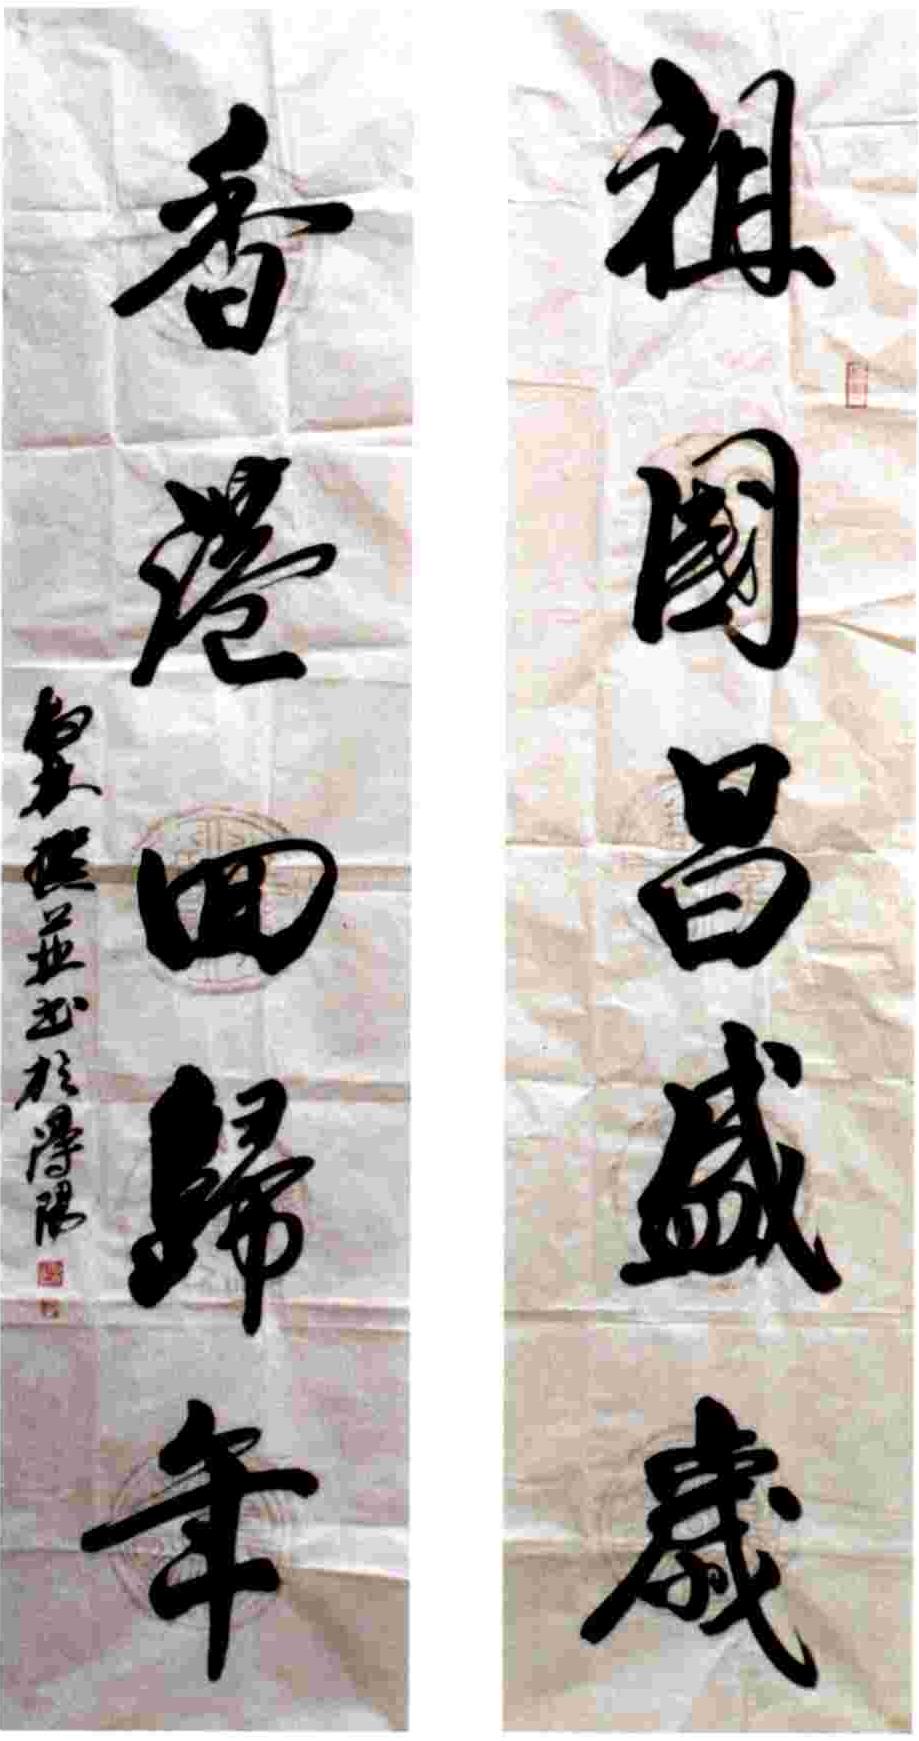 祖國昌盛歲
香港回歸年
撰並书於潯陽